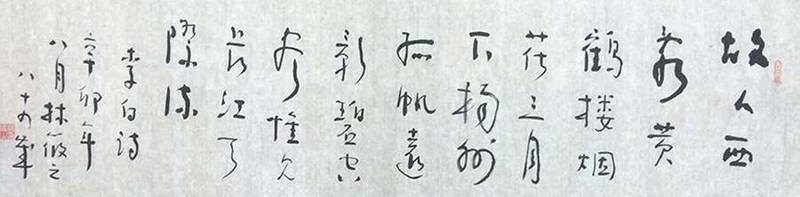 故人西
辞黄
鹤楼烟
花三月
下扬州
孤帆远
影碧空
尽惟见
长江天
际流
李白诗
辛卯年
八月林筱之
八十四岁